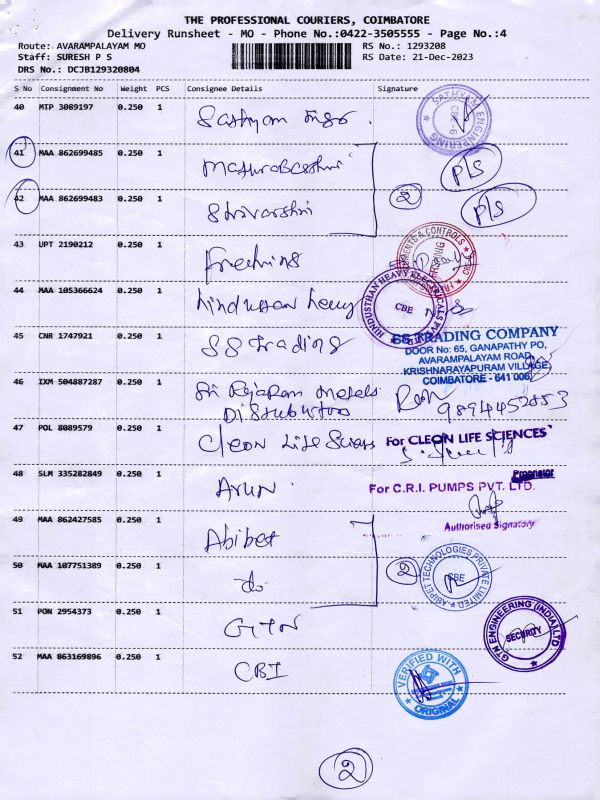 THE PROFESSIONAL COURIERS, COIMBATORE
Delivery Runsheet - MO - Phone No.:0422-3505555 - Page No.:4
Route: AVARAMPALAYAM MO
RS No.: 1293208
Staff: SURESH P S
RS Date: 21-Dec-2023
DRS No.: DCJB129320804
S No Consignment No Weight PCS Consignee Details Signature
40 MTP 3089197 0.250 1 Sathyam
SATHYAM ENGINEERING
CBE-16
41 MAA 862699485 0.250 1
P/S
42 MAA 862699483 0.250 1 Shrivarshni
2
P/S
43 UPT 2190212 0.250 1
44 MAA 105366624 0.250 1 hindustan heavy
HINDUSTHAN HEAVY ELECTRICALS PVT LTD
CBE
45 CNR 1747921 0.250 1 SS Trading
SS TRADING COMPANY
DOOR No: 65, GANAPATHY PO,
AVARAMPALAYAM ROAD,
KRISHNARAYAPURAM VILLAGE,
COIMBATORE - 641 006.
46 IXM 504887287 0.250 1 Sri Rajaram Metals
Distributors
9894452853
47 POL 8089579 0.250 1 Cleon Life
For CLEON LIFE SCIENCES
Proprietor
48 SLM 335282849 0.250 1 Arun
For C.R.I. PUMPS PVT. LTD.
Authorised Signatory
49 MAA 862427585 0.250 1 Abipet
50 MAA 107751389 0.250 1 do
2
ABIPET TECHNOLOGIES PRIVATE LIMITED
CBE
51 PON 2954373 0.250 1 GTN
GTN ENGINEERING (INDIA) LTD
SECURITY
52 MAA 863169896 0.250 1 CBI
VERIFIED WITH
ORIGINAL
2